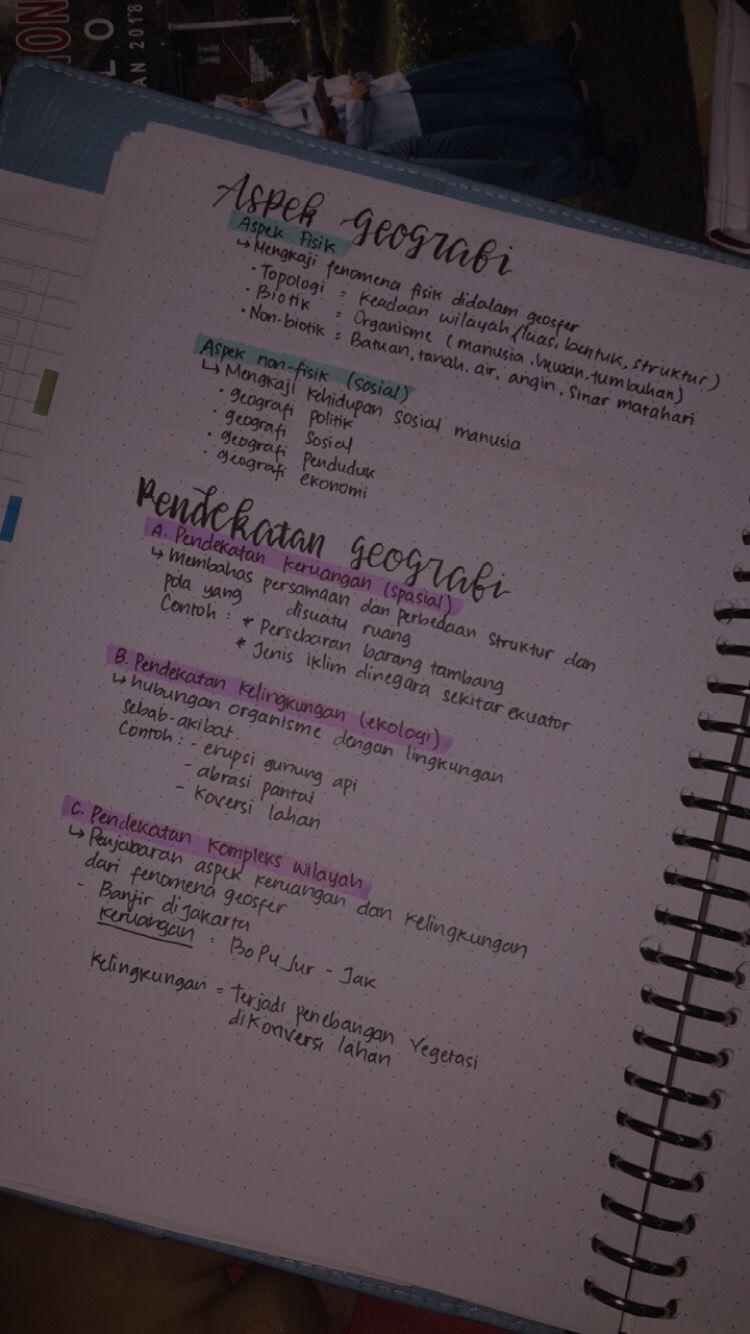 ION
L O
AN 2018
Aspek geografi
Aspek Fisik
↳ Mengkaji fenomena fisik didalam geosfer
• Topologi = Keadaan wilayah (luas, bentuk, struktur)
• Biotik = Organisme (manusia, hewan, tumbuhan)
• Non-biotik = Batuan, tanah, air, angin, sinar matahari
Aspek non-fisik (sosial)
↳ Mengkaji kehidupan sosial manusia
• geografi politik
• geografi sosial
• geografi penduduk
• geografi ekonomi
Pendekatan geografi
A. Pendekatan keruangan (spasial)
↳ Membahas persamaan dan perbedaan struktur dan
pola yang disuatu ruang
Contoh : * Persebaran barang tambang
* Jenis iklim dinegara sekitar ekuator
B. Pendekatan kelingkungan (ekologi)
↳ hubungan organisme dengan lingkungan
sebab-akibat
Contoh : - erupsi gunung api
- abrasi pantai
- Koversi lahan
C. Pendekatan Kompleks wilayah
↳ Penjabaran aspek keruangan dan kelingkungan
dari fenomena geosfer
- Banjir diJakarta
Keruangan = BoPuJur - Jak
Kelingkungan = Terjadi penebangan vegetasi
diKonversi lahan